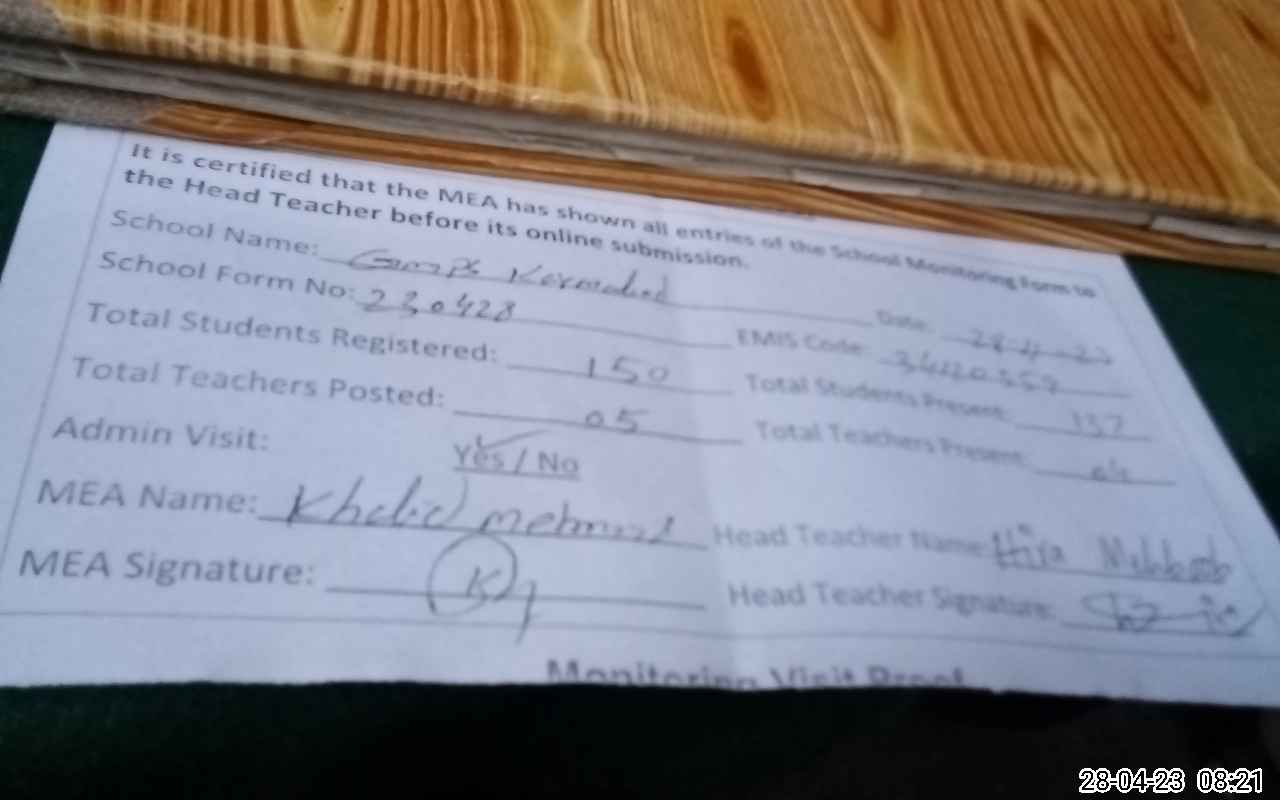 It is certified that the MEA has shown all entries of the School Monitoring Form to
the Head Teacher before its online submission.
School Name: Date: 28-4-23
School Form No: 230428 EMIS Code:
Total Students Registered: 150 Total Students Present: 137
Total Teachers Posted: 05 Total Teachers Present: 04
Admin Visit: Yes / No
MEA Name: Khalid mehmood Head Teacher Name: Hira Mehboob
MEA Signature: Head Teacher Signature:
Monitoring Visit Proof
28-04-23 08:21